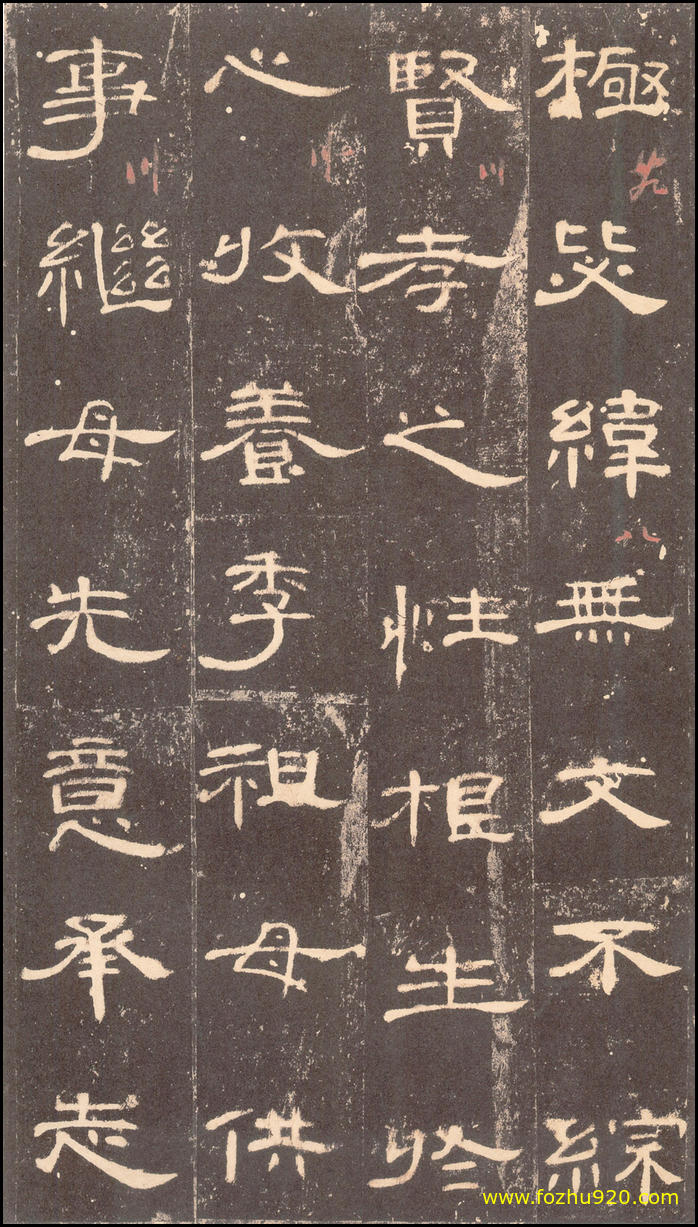 極毖緯無文不綜
賢孝之性根生於
心收養季祖母供
事繼母先意承志
www.fozhu920.com